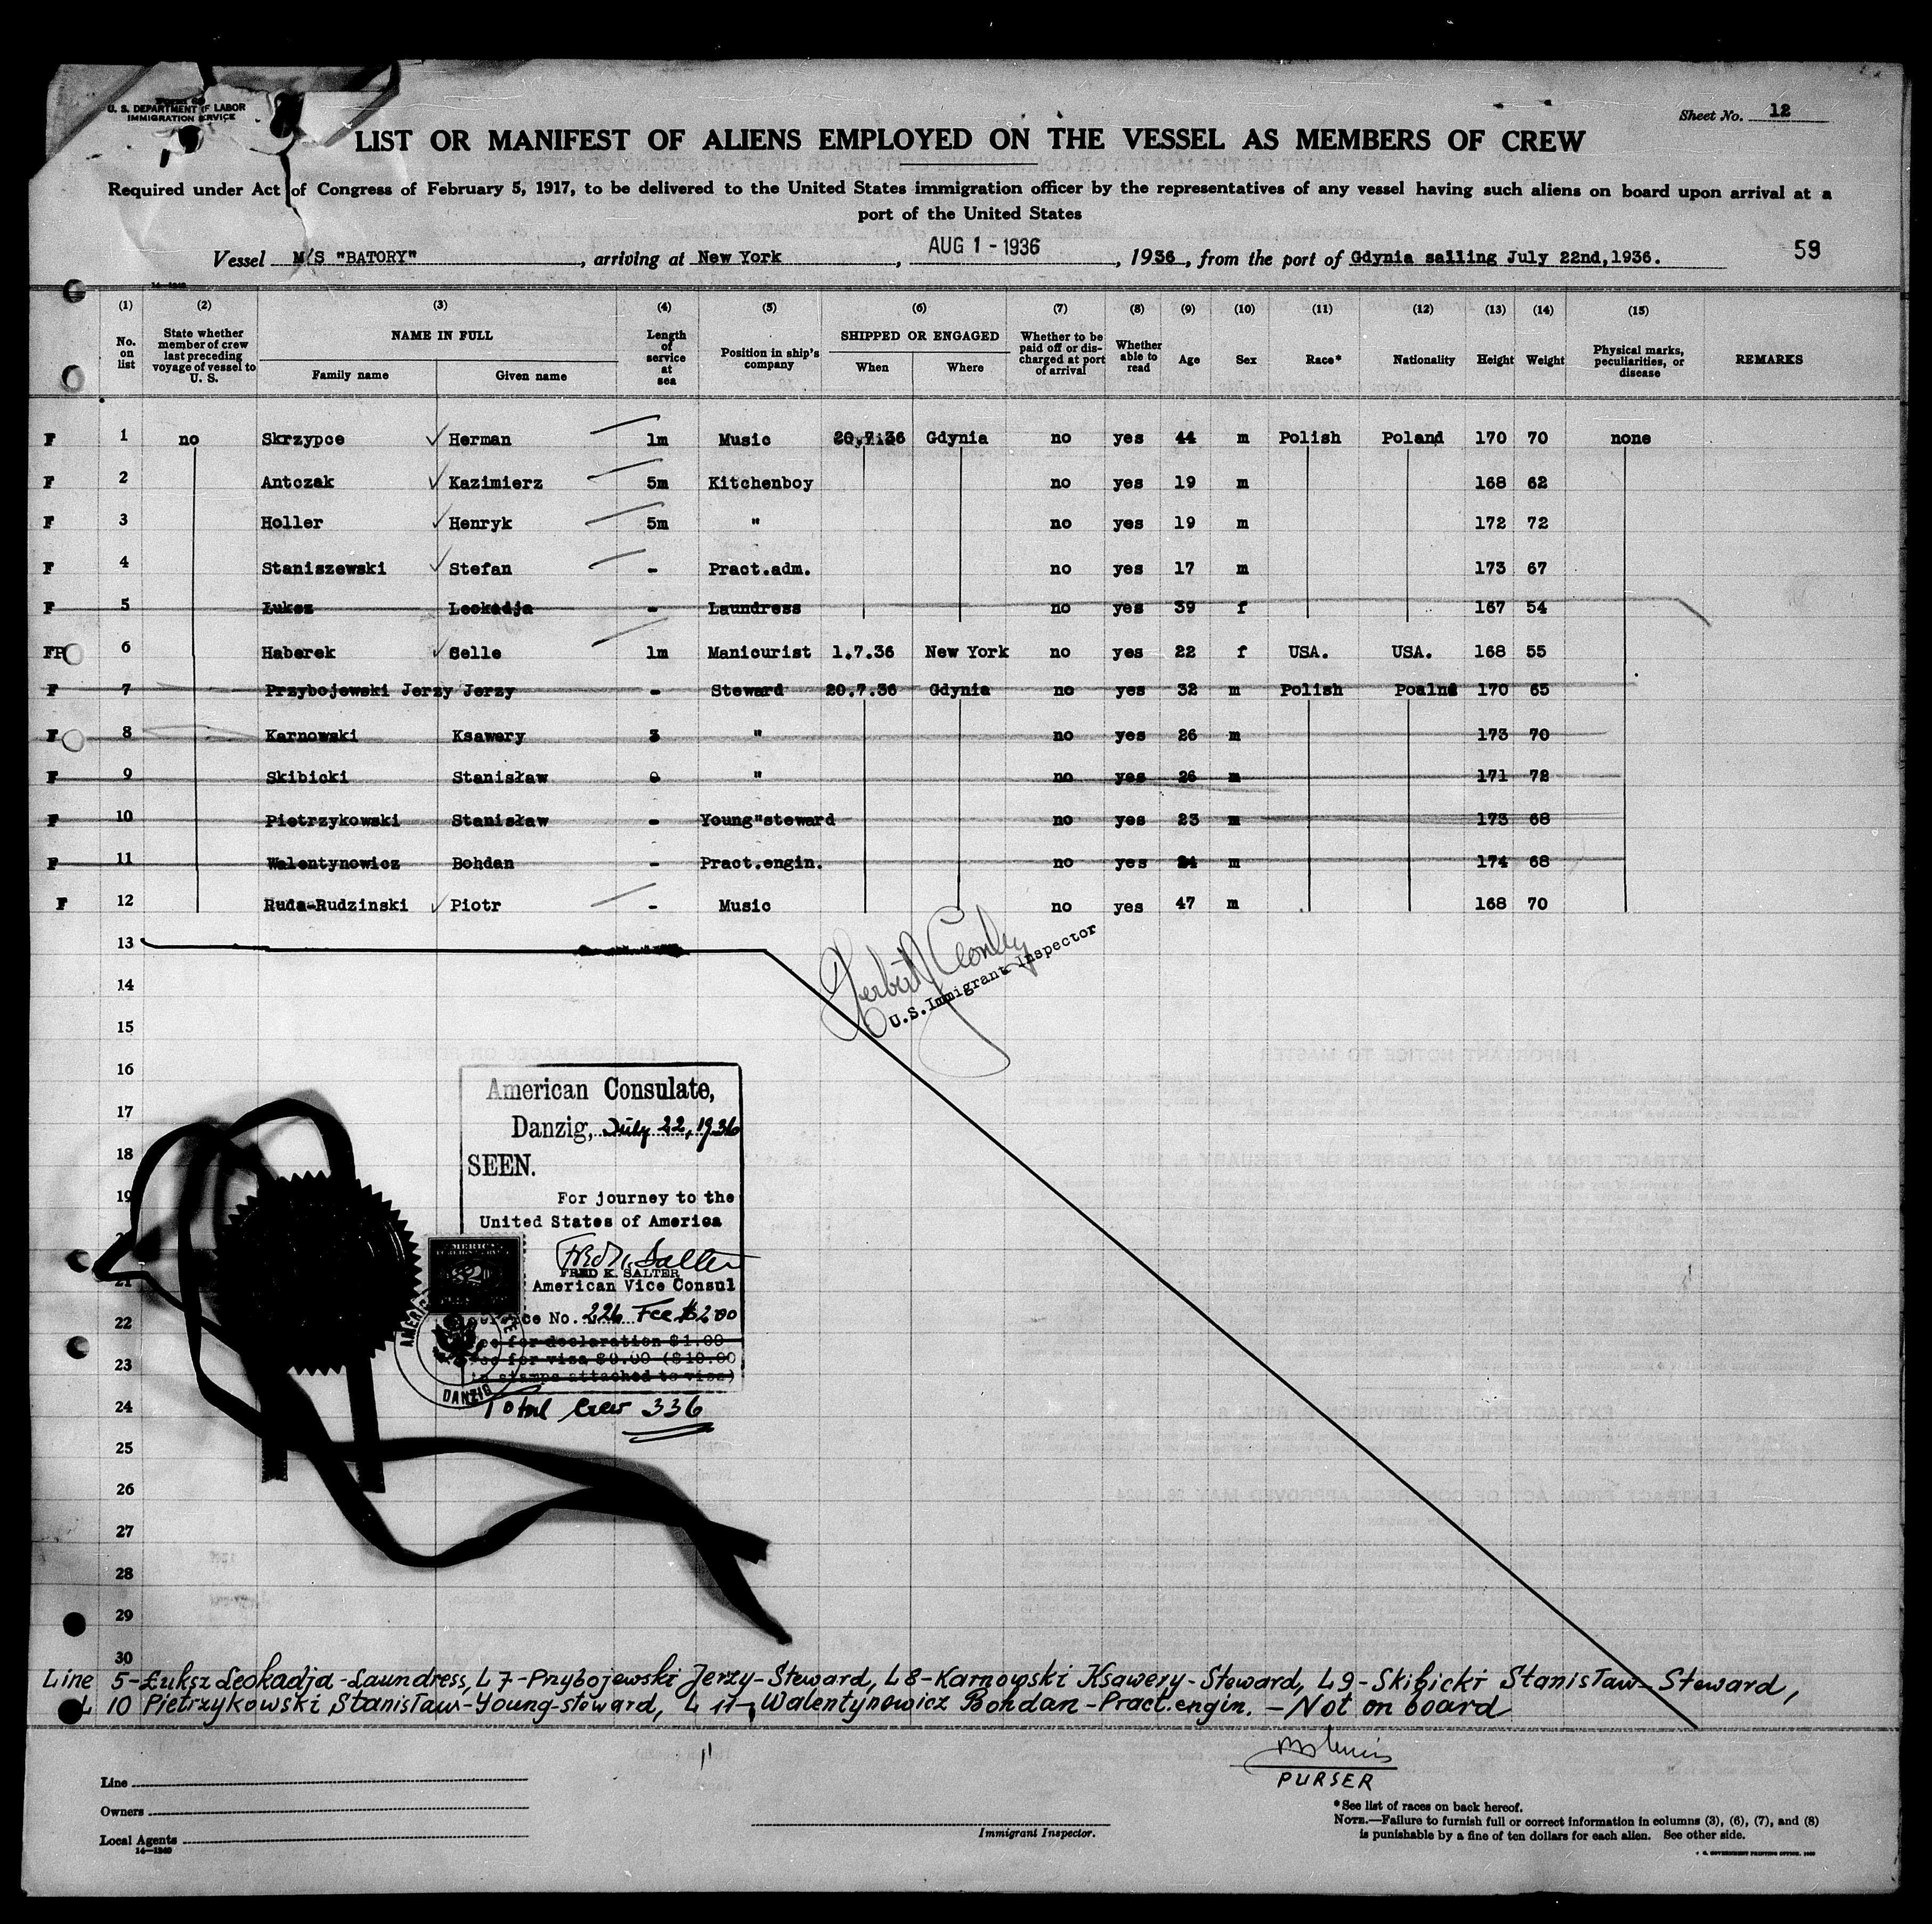 Form 68
U. S. DEPARTMENT OF LABOR
IMMIGRATION SERVICE
Sheet No. 12
LIST OR MANIFEST OF ALIENS EMPLOYED ON THE VESSEL AS MEMBERS OF CREW
Required under Act of Congress of February 5, 1917, to be delivered to the United States immigration officer by the representatives of any vessel having such aliens on board upon arrival at a
port of the United States
Vessel M/S "BATORY", arriving at New York, AUG 1 - 1936, 1936, from the port of Gdynia sailing July 22nd,1936. 59
14—1240
(1) (2) (3) (4) (5) (6) (7) (8) (9) (10) (11) (12) (13) (14) (15)
No. on list State whether member of crew last preceding voyage of vessel to U. S. NAME IN FULL Family name Given name Length of service at sea Position in ship's company SHIPPED OR ENGAGED When Where Whether to be paid off or discharged at port of arrival Whether able to read Age Sex Race* Nationality Height Weight Physical marks, peculiarities, or disease REMARKS
F 1 no Skrzypce Herman 1m Music 20.7.36 Gdynia no yes 44 m Polish Poland 170 70 none
F 2 Antczak Kazimierz 5m Kitchenboy no yes 19 m 168 62
F 3 Holler Henryk 5m " no yes 19 m 172 72
F 4 Staniszewski Stefan - Pract.adm. no yes 17 m 173 67
F 5 Łuksz Leokadja - Laundress no yes 39 f 167 54
FP 6 Haberek Selle 1m Manicurist 1.7.36 New York no yes 22 f USA. USA. 168 55
F 7 Przybojewski Jerzy Jerzy - Steward 20.7.36 Gdynia no yes 32 m Polish Poalnd 170 65
F 8 Karnowski Ksawery 3 " no yes 26 m 173 70
F 9 Skibicki Stanisław " no yes 26 m 171 72
F 10 Pietrzykowski Stanisław - Young"steward no yes 23 m 173 68
F 11 Walentynowicz Bohdan - Pract.engin. no yes 24 m 174 68
F 12 Ruda-Rudzinski Piotr - Music no yes 47 m 168 70
13
14
U.S. Immigrant Inspector
15
16
American Consulate,
17
Danzig, July 22, 1936
18
SEEN.
19
For journey to the
United States of America
21
FRED K. SALTER
American Vice Consul
22
No. 226 Fee $2.00
for declaration $1.00
23
for visa $9.00 ($10.00
in stamps attached to visa)
DANZIG
24
Total Crew 336
25
26
27
28
29
30
Line 5-Łuksz Leokadja-Laundress, L 7-Przybojewski Jerzy-Steward, L 8-Karnowski Ksawery-Steward, L 9-Skibicki Stanisław-Steward,
L 10 Pietrzykowski Stanisław-Young-steward, L 11-Walentynowicz Bohdan-Pract.engin. - Not on board
PURSER
Line
Owners
Local Agents
14—1240
Immigrant Inspector.
*See list of races on back hereof.
NOTE.—Failure to furnish full or correct information in columns (3), (6), (7), and (8)
is punishable by a fine of ten dollars for each alien. See other side.